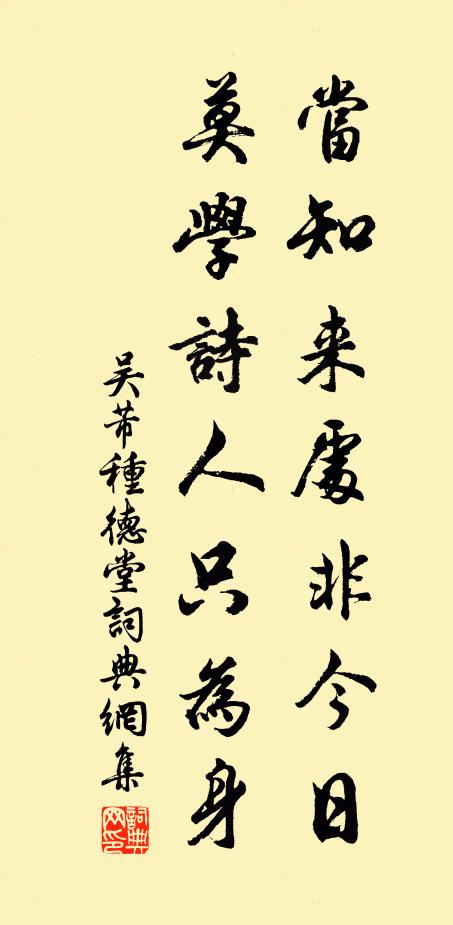 當知来處非今日
莫學詩人只為身
吴芾種德堂詞典網集
詞典網印